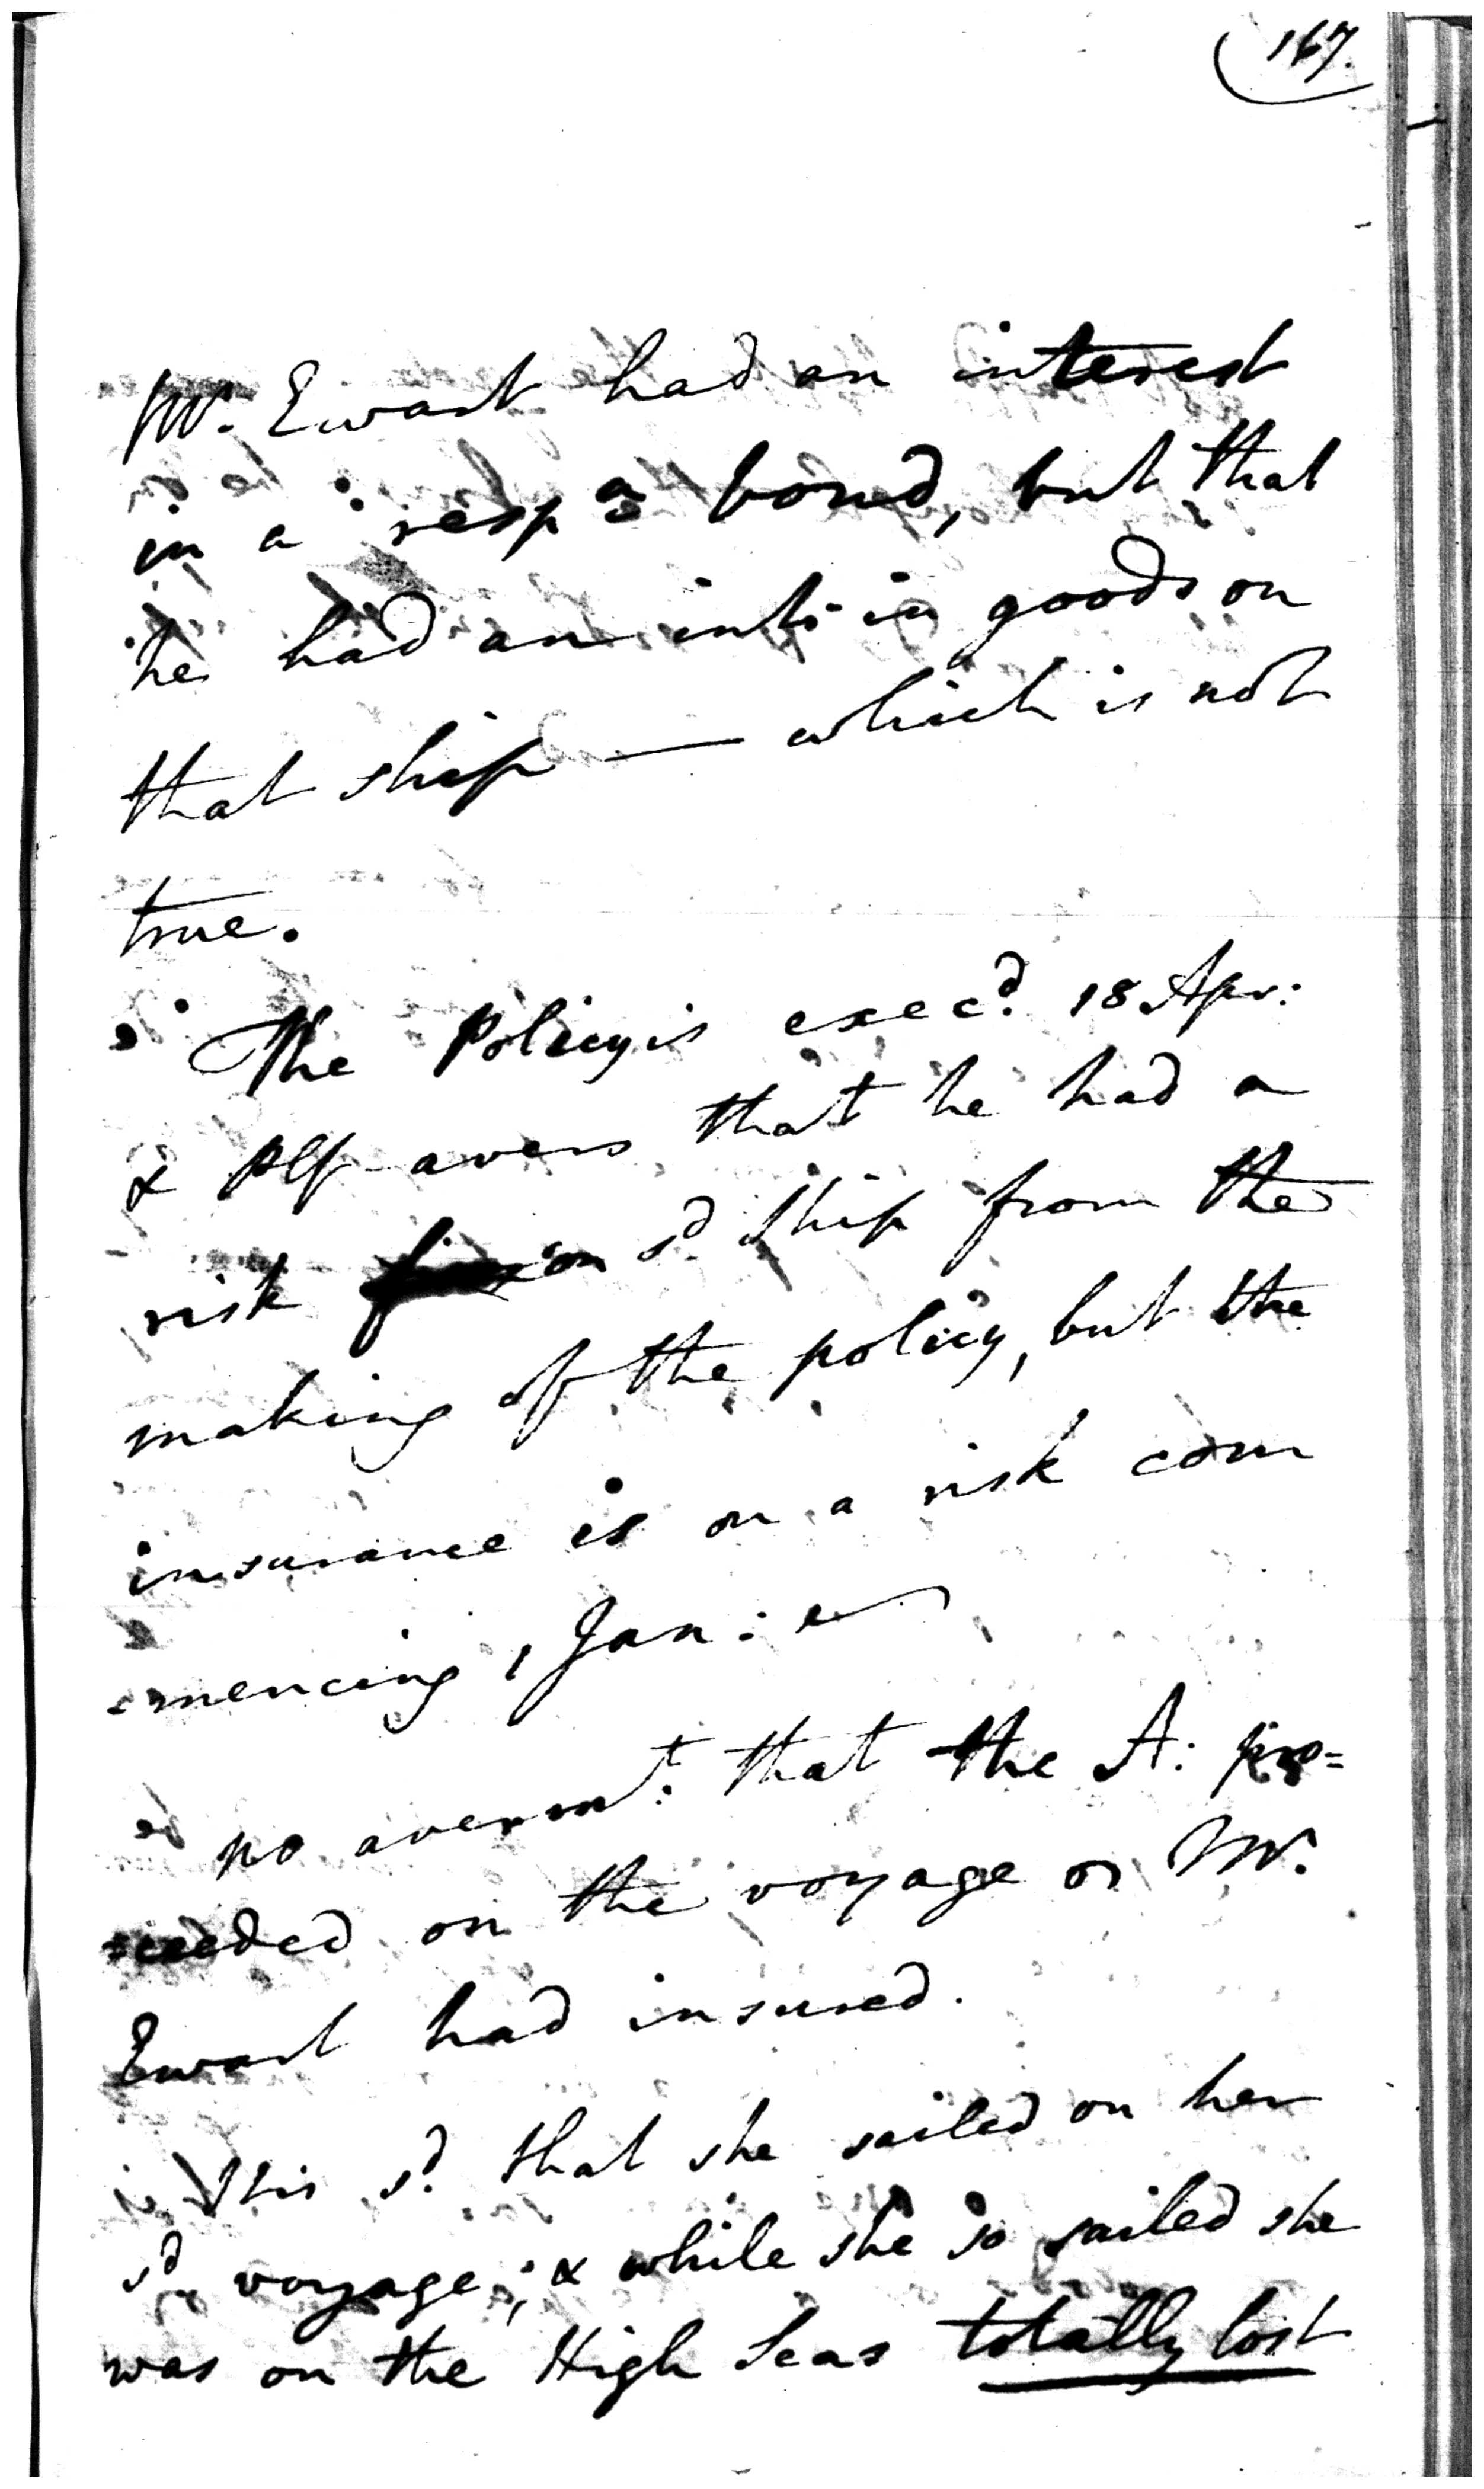 167.
Mr. Ewart had an interest
in a resp a bond, but that
he had an int: in goods on
that ship — which is not
true.
The Policy is exec.d 18 Apr:
& Plf avers that he had a
risk on sd. Ship from the
making of the policy, but the
insurance is on a risk com
=mencing 1 Jan:
no averm.t that the A: pro=
=ceeded on the voyage or Mr.
Ewart had insured.
Tis sd. that she sailed on her
sd voyage; & while she so sailed she
was on the High Seas totally lost